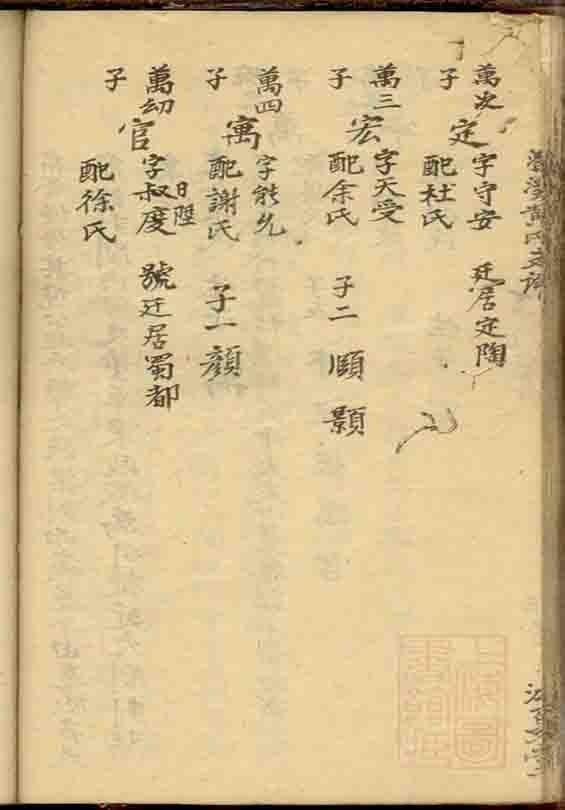 萬次子
定
字守安 迁居定陶
配杜氏
萬三子
宏
字天受
配余氏 子二 頤 顥
萬四子
寓
字能允
配謝氏 子一 顏
萬幼子
官
字叔度 曰陞 號迁居蜀都
配徐氏
上海圖書館藏